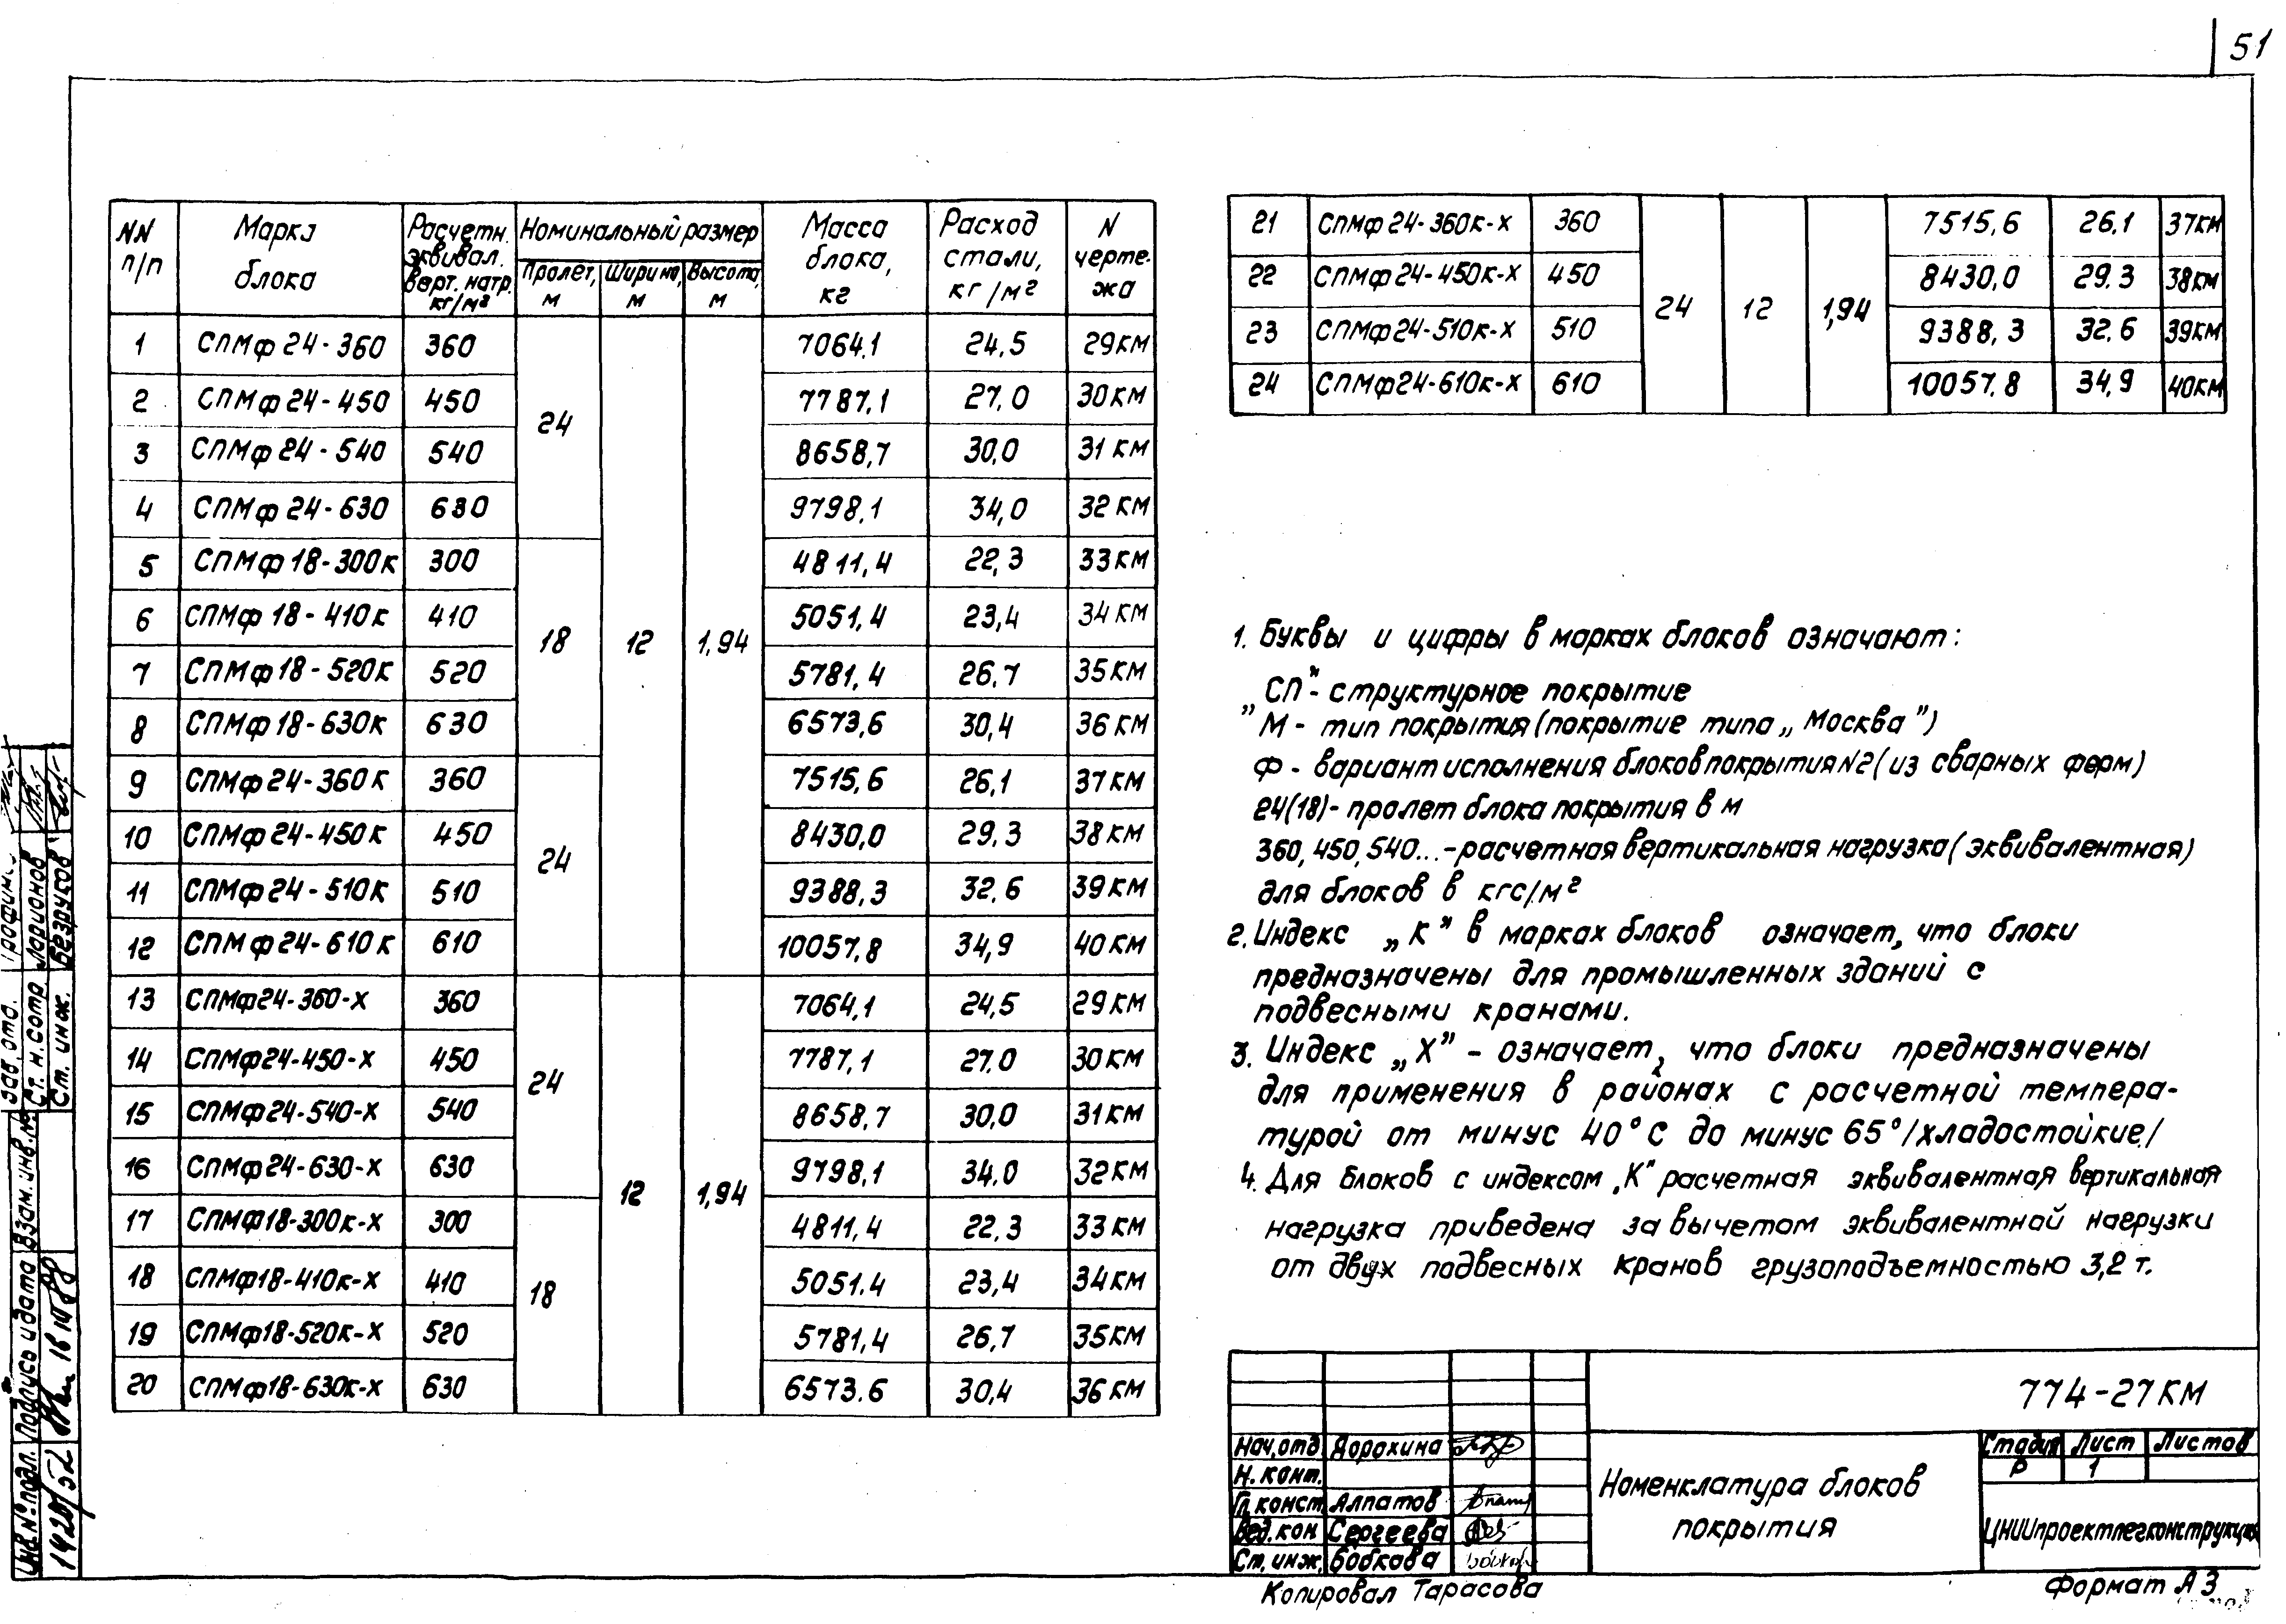 51
NN п/п | Марка блока | Расчетн. эквивал. верт. нагр. кг/м² | Номинальный размер | Масса блока, кг | Расход стали, кг/м² | N чертежа
Пролет, м | Ширина, м | Высота, м
1 СПМФ 24-360 360 24 12 1,94 7064,1 24,5 29КМ
2 СПМФ 24-450 450 7787,1 27,0 30КМ
3 СПМФ 24-540 540 8658,7 30,0 31КМ
4 СПМФ 24-630 630 9798,1 34,0 32КМ
5 СПМФ 18-300К 300 18 4811,4 22,3 33КМ
6 СПМФ 18-410К 410 5051,4 23,4 34КМ
7 СПМФ 18-520К 520 5781,4 26,7 35КМ
8 СПМФ 18-630К 630 6573,6 30,4 36КМ
9 СПМФ 24-360К 360 24 7515,6 26,1 37КМ
10 СПМФ 24-450К 450 8430,0 29,3 38КМ
11 СПМФ 24-510К 510 9388,3 32,6 39КМ
12 СПМФ 24-610К 610 10057,8 34,9 40КМ
13 СПМФ24-360-Х 360 24 12 1,94 7064,1 24,5 29КМ
14 СПМФ24-450-Х 450 7787,1 27,0 30КМ
15 СПМФ24-540-Х 540 8658,7 30,0 31КМ
16 СПМФ24-630-Х 630 9798,1 34,0 32КМ
17 СПМФ18-300К-Х 300 18 4811,4 22,3 33КМ
18 СПМФ18-410К-Х 410 5051.4 23,4 34КМ
19 СПМФ18-520К-Х 520 5781,4 26,7 35КМ
20 СПМФ18-630К-Х 630 6573.6 30,4 36КМ
21 СПМФ 24-360К-Х 360 24 12 1,94 7515,6 26,1 37КМ
22 СПМФ 24-450К-Х 450 8430,0 29.3 38КМ
23 СПМФ24-510К-Х 510 9388,3 32,6 39КМ
24 СПМФ24-610К-Х 610 10057,8 34,9 40КМ
1. Буквы и цифры в марках блоков означают:
„СП" - структурное покрытие
" М - тип покрытия (покрытие типа „Москва")
Ф - вариант исполнения блоков покрытия N2 (из сварных ферм)
24(18) - пролет блока покрытия в м
360, 450, 540... - расчетная вертикальная нагрузка (эквивалентная)
для блоков в кгс/м²
2. Индекс „К" в марках блоков означает, что блоки
предназначены для промышленных зданий с
подвесными кранами.
3. Индекс „Х" - означает, что блоки предназначены
для применения в районах с расчетной темпера-
турой от минус 40°С до минус 65°/хладостойкие/
4. Для блоков с индексом „К" расчетная эквивалентная вертикальная
нагрузка приведена за вычетом эквивалентной нагрузки
от двух подвесных кранов грузоподъемностью 3,2 т.
774-27КМ
Нач.отд Дорохина
Н. конт.
Гл. конст. Алпатов
Вед. кон Сергеева
Ст. инж. Бобкова
Номенклатура блоков
покрытия
Стадия Лист Листов
Р 1
ЦНИИпроектлегконструкция
Копировал Тарасова
Формат А3
Зав. отд.
Ст. н. сотр. Ларионов
Ст. инж. Безруков
Взам. инв. №
Подпись и дата
Инв. № подл.